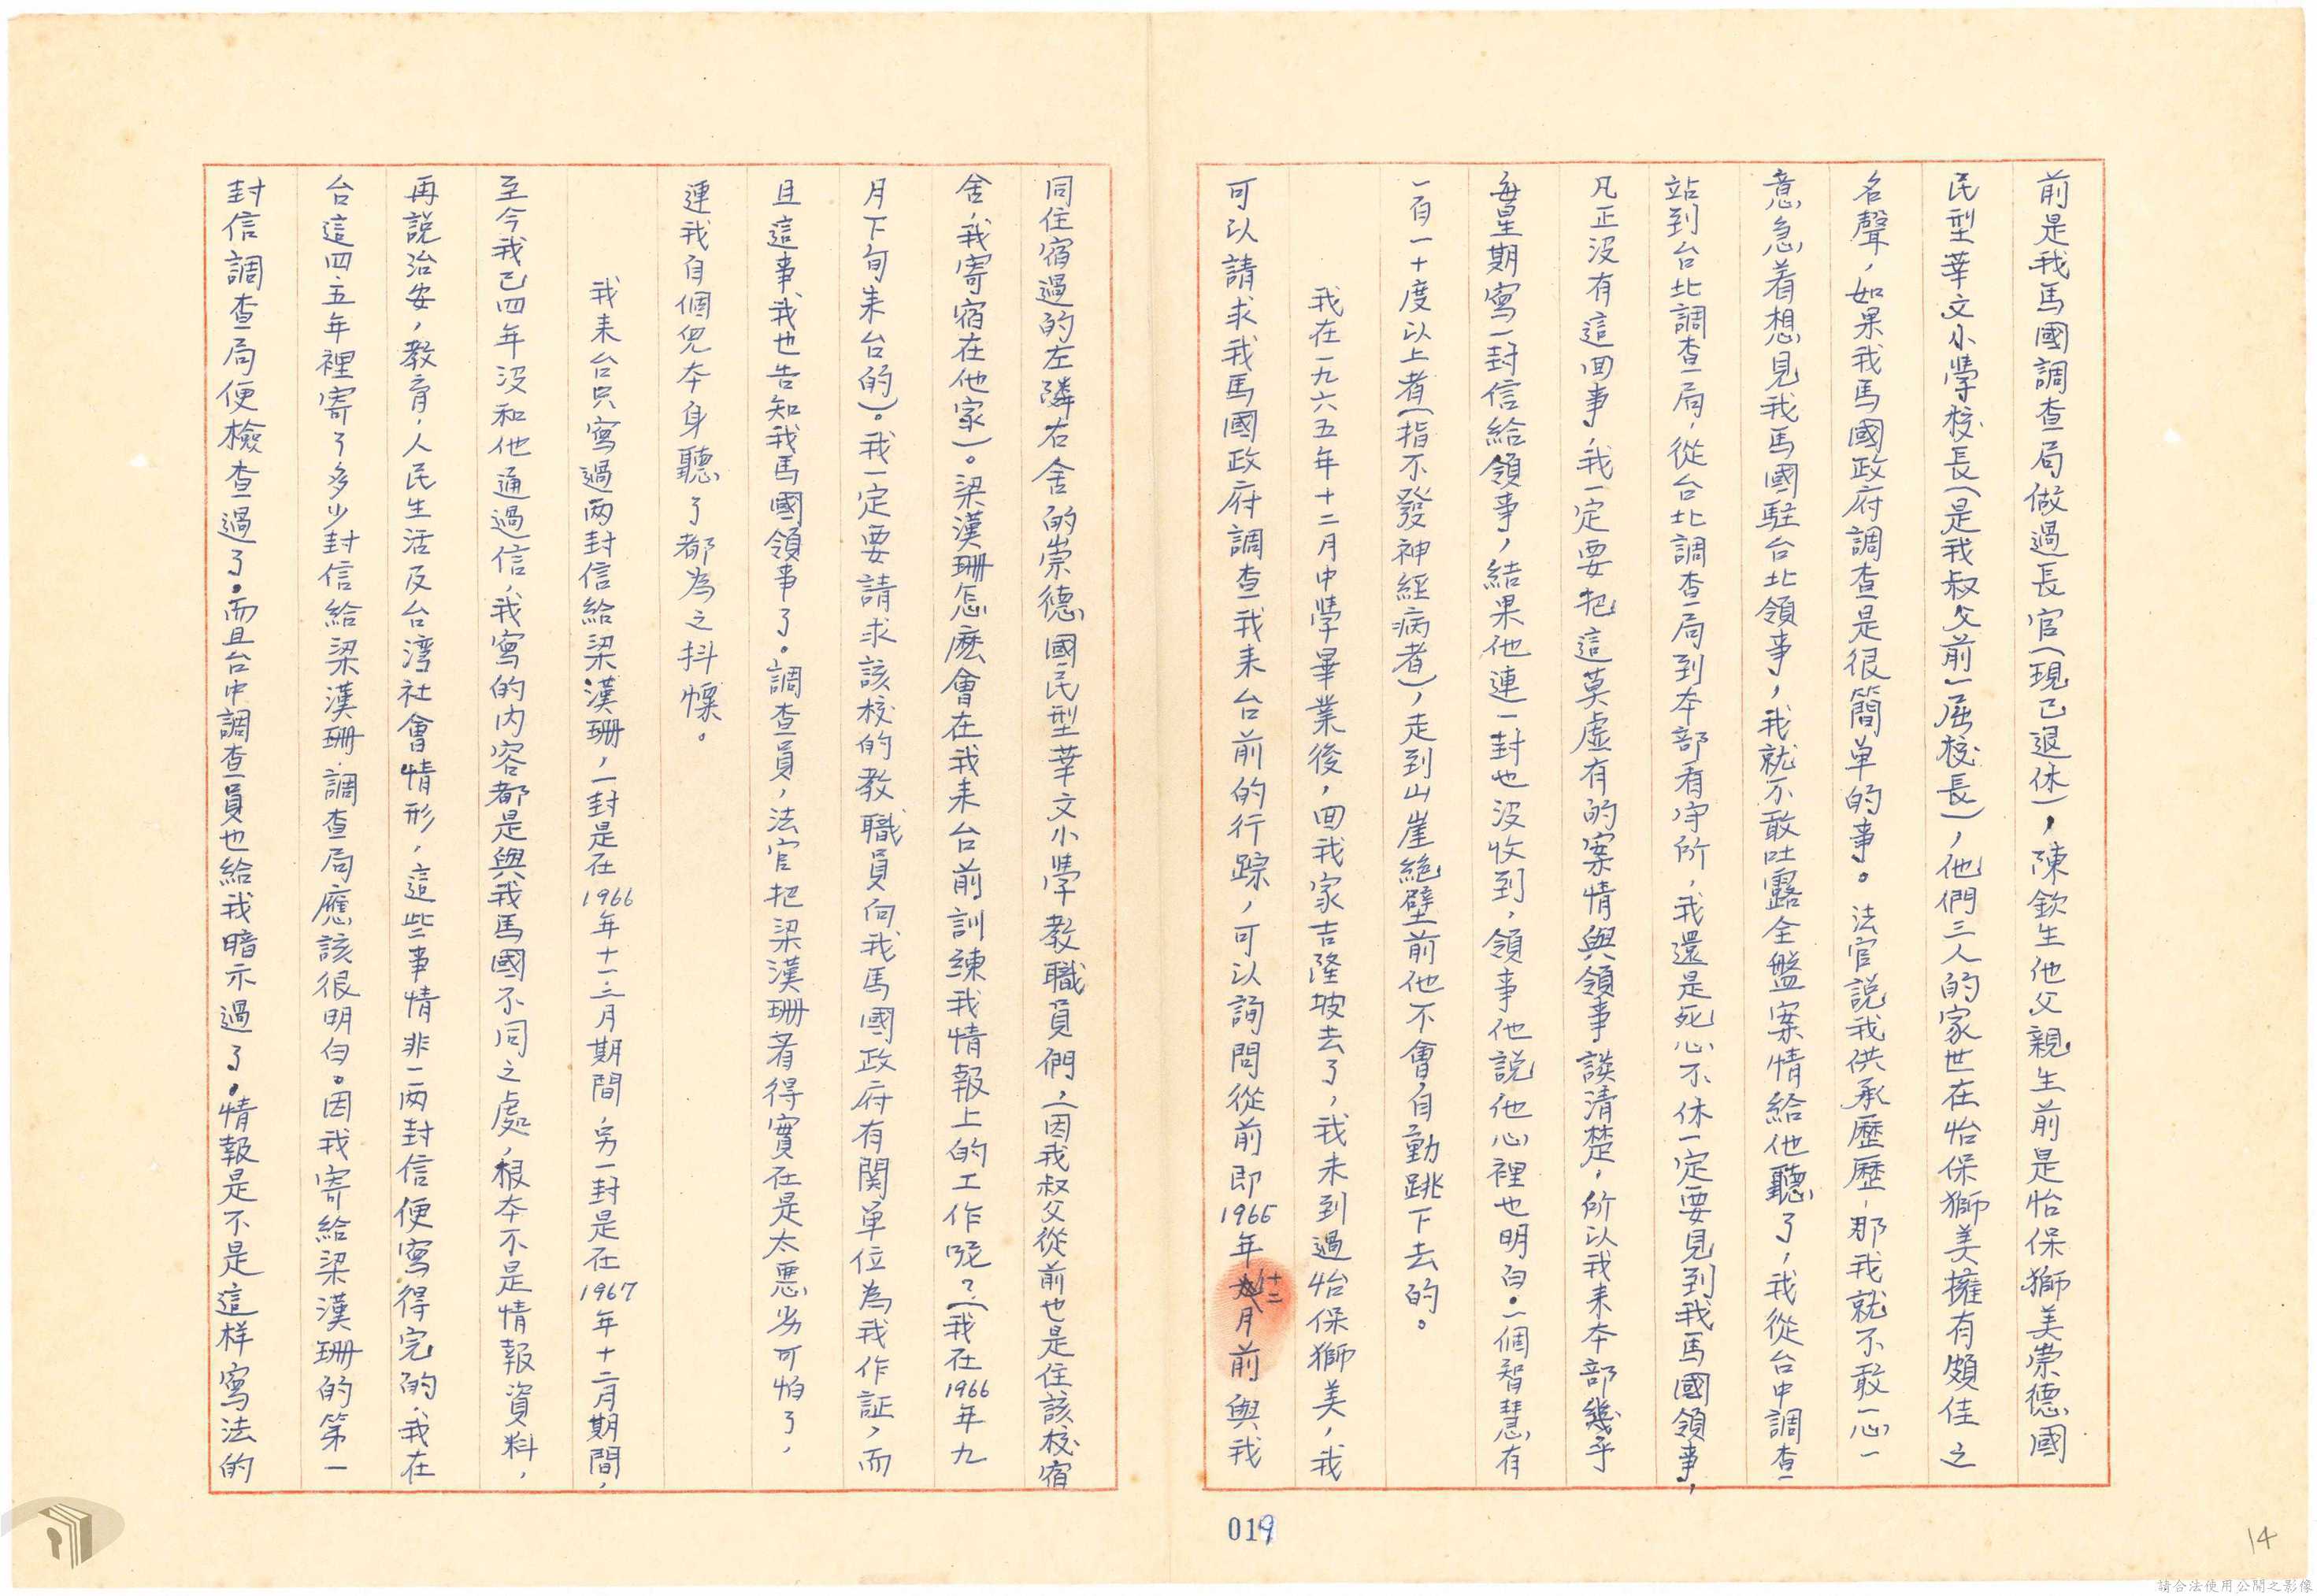 前是我馬國調查局做過長官(現已退休)，陳欽生他父親生前是怡保獅美崇德國
民型華文小學校長(是我叔父前一屆校長)，他們三人的家世在怡保獅美擁有頗佳之
名聲，如果我馬國政府調查是很簡单的事。法官説我供承歷歷，那我就不敢一心一
意急着想見我馬國駐台北領事，我就不敢吐露全盤案情給他聽了，我從台中調查
站到台北調查局，從台北調查局到本部看守所，我還是死心不休一定要見到我馬國領事，
凡正沒有這回事，我一定要把這莫虛有的案情與領事談清楚，所以我來本部幾乎
每星期寫一封信給領事，結果他連一封也沒收到，領事他説他心裡也明白。一個智慧有
一百一十度以上者(指不發神經病者)，走到山崖絕壁前他不會自動跳下去的。
我在一九六五年十二月中學畢業後，回我家吉隆坡去了，我未到過怡保獅美，我
可以請求我馬國政府調查我來台前的行踪，可以詢問從前即1965年十二月前與我
同住宿過的左隣右舍的崇德國民型華文小學教職員們，(因我叔父從前也是住該校宿
舍，我寄宿在他家)。梁漢珊怎麽會在我來台前訓練我情報上的工作呢？(我在1966年九
月下旬來台的)。我一定要請求該校的教職員向我馬國政府有関单位為我作証，而
且這事我也告知我馬國領事了。調查員，法官把梁漢珊看得實在是太惡劣可怕了，
連我自個兒本身聽了都為之抖慄。
我來台只寫過两封信給梁漢珊，一封是在1966年十一、二月期間，另一封是在1967年十二月期間，
至今我已四年沒和他通過信，我寫的内容都是與我馬國不同之處，根本不是情報資料，
再説治安，教育，人民生活及台湾社會情形，這些事情非一两封信便寫得完的，我在
台這四五年裡寄了多少封信給梁漢珊，調查局應該很明白。因我寄給梁漢珊的第一
封信調查局便檢查過了。而且台中調查員也給我暗示過了。情報是不是這样寫法的
019
14
請合法使用公開之影像